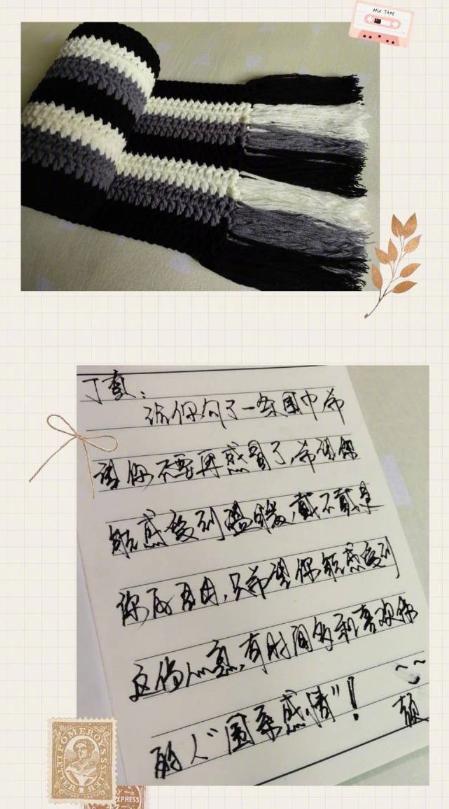 MIX TAPE
丁真：
给你勾了一条围巾希
望你不要再感冒了，希望你
能感受到温暖，戴不戴是
你的自由，只希望你能感受到
这份心意，有时间多和喜欢你
的人“围系感情”！
POMEROY'S
EXPRESS